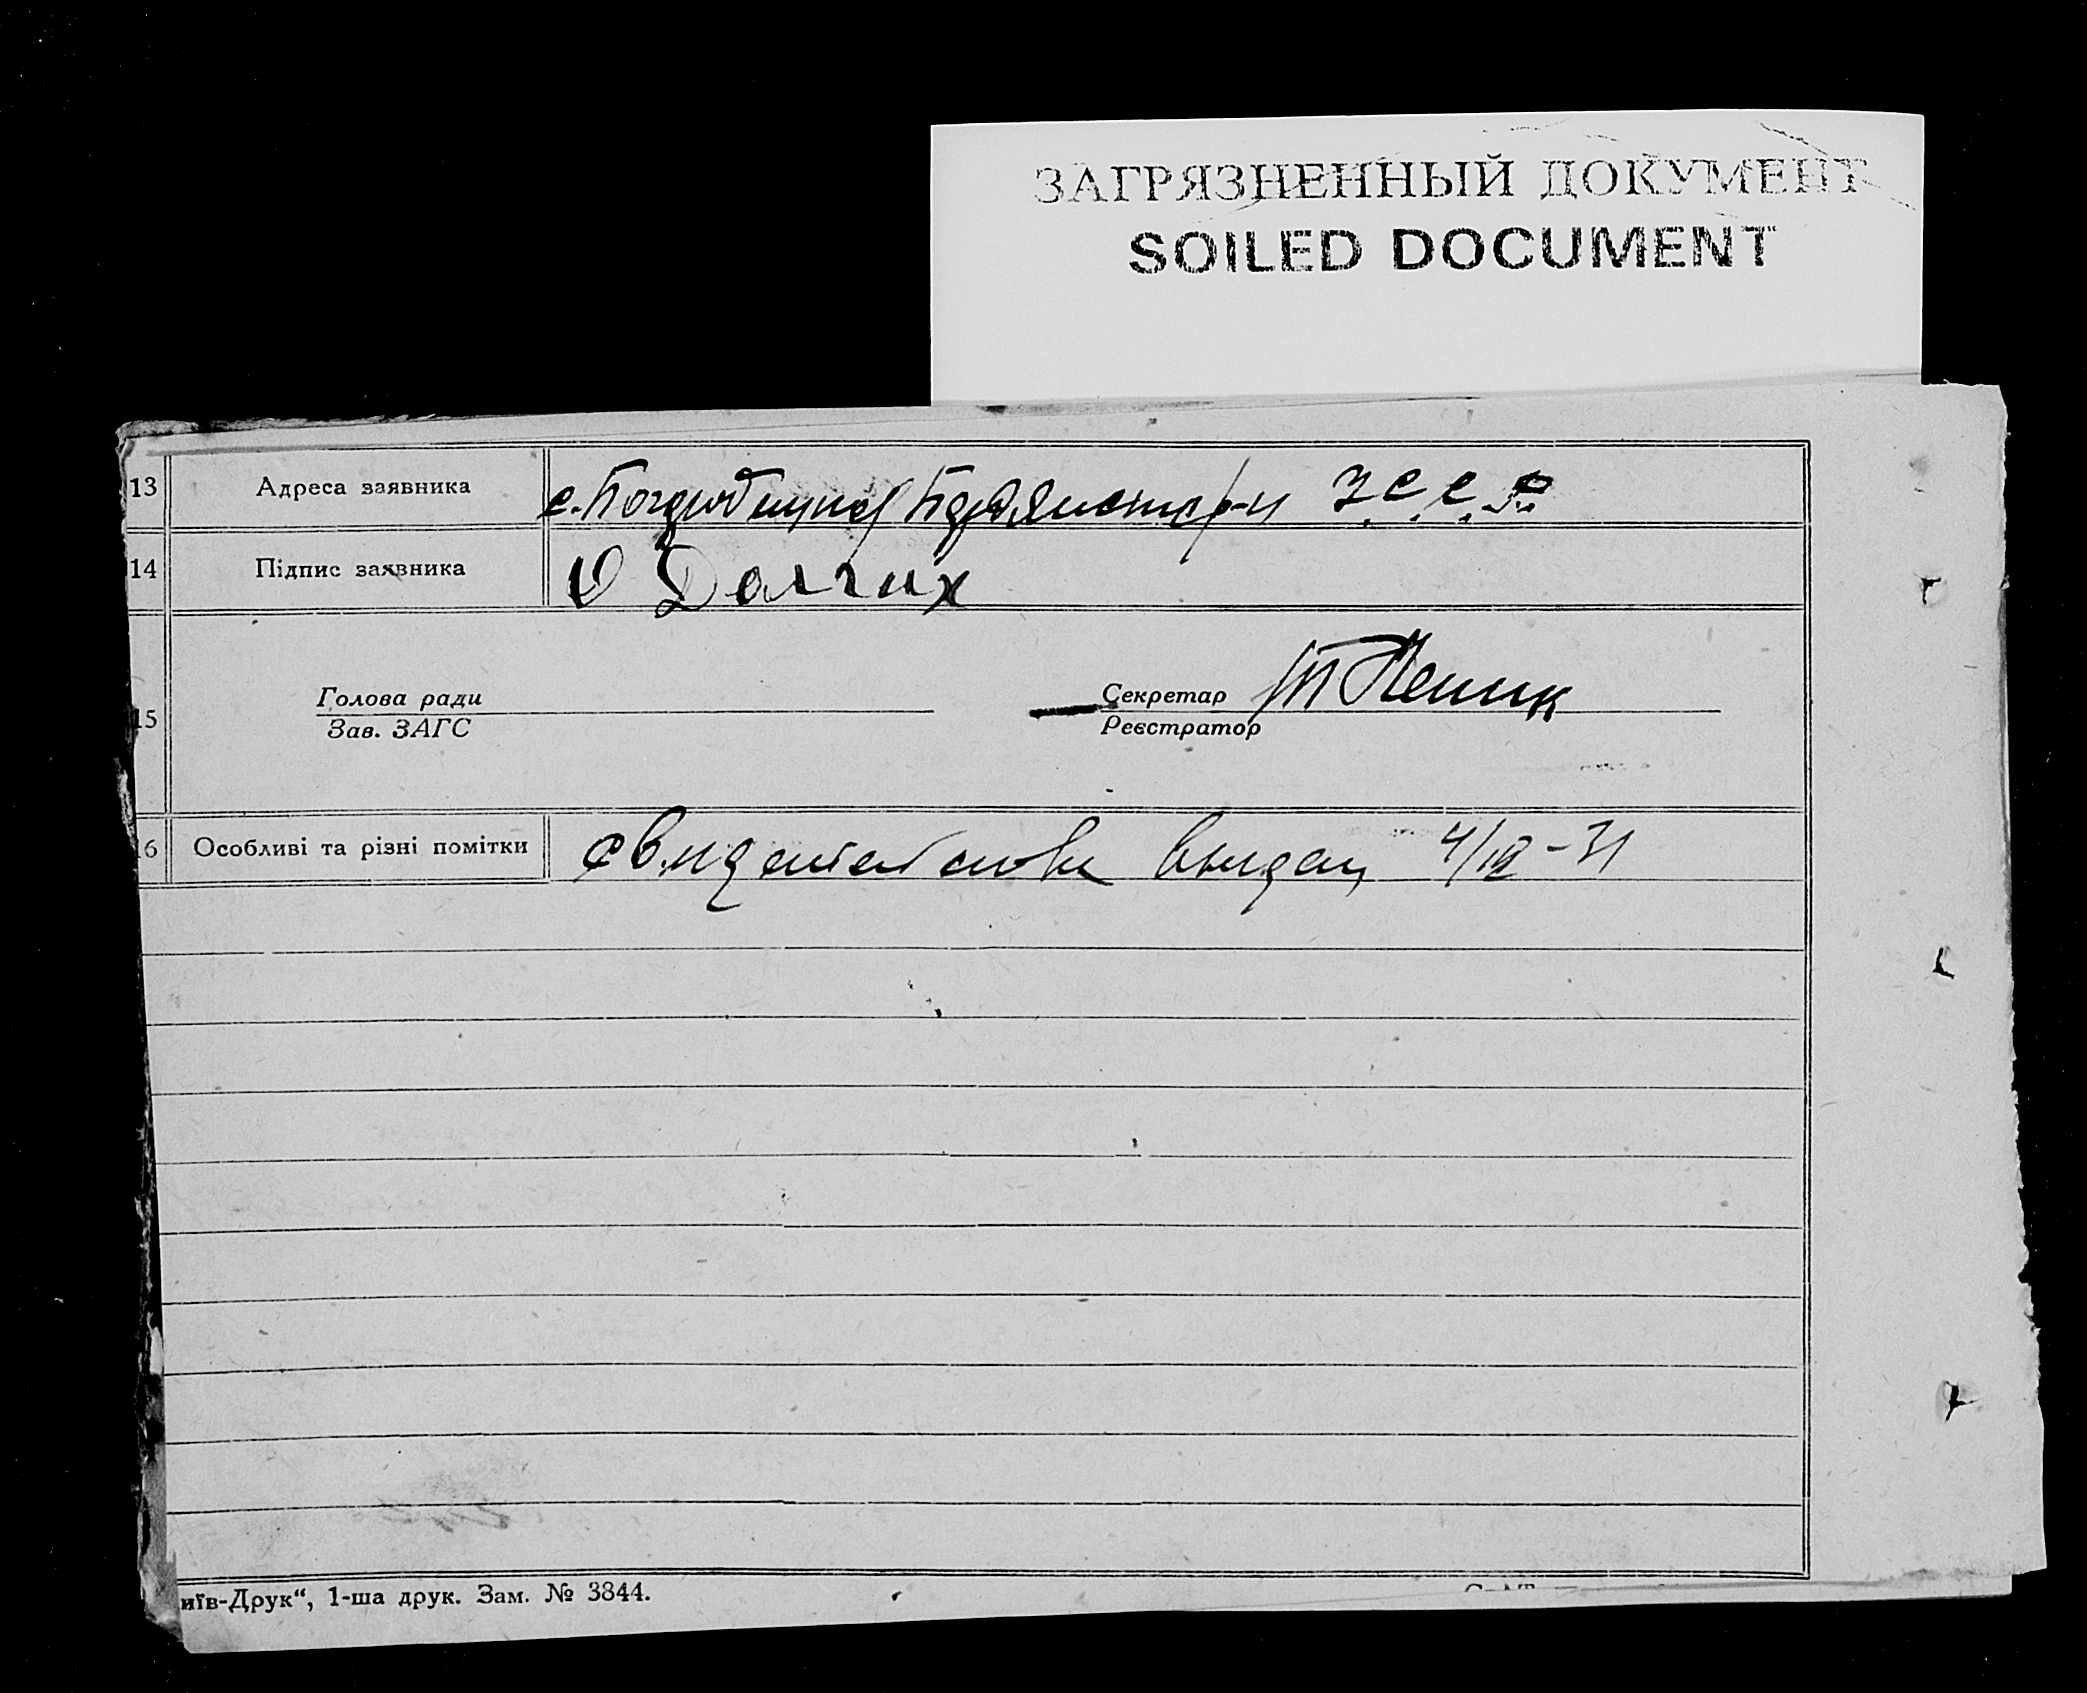 ЗАГРЯЗНЕННЫЙ ДОКУМЕНТ
SOILED DOCUMENT
13 Адреса заявника с. р-н УССР
14 Підпис заявника Долгих
15 Голова ради Секретар
Зав. ЗАГС Реєстратор
16 Особливі та різні помітки выдан 4/IX-31
иїв-Друк“, 1-ша друк. Зам. № 3844.